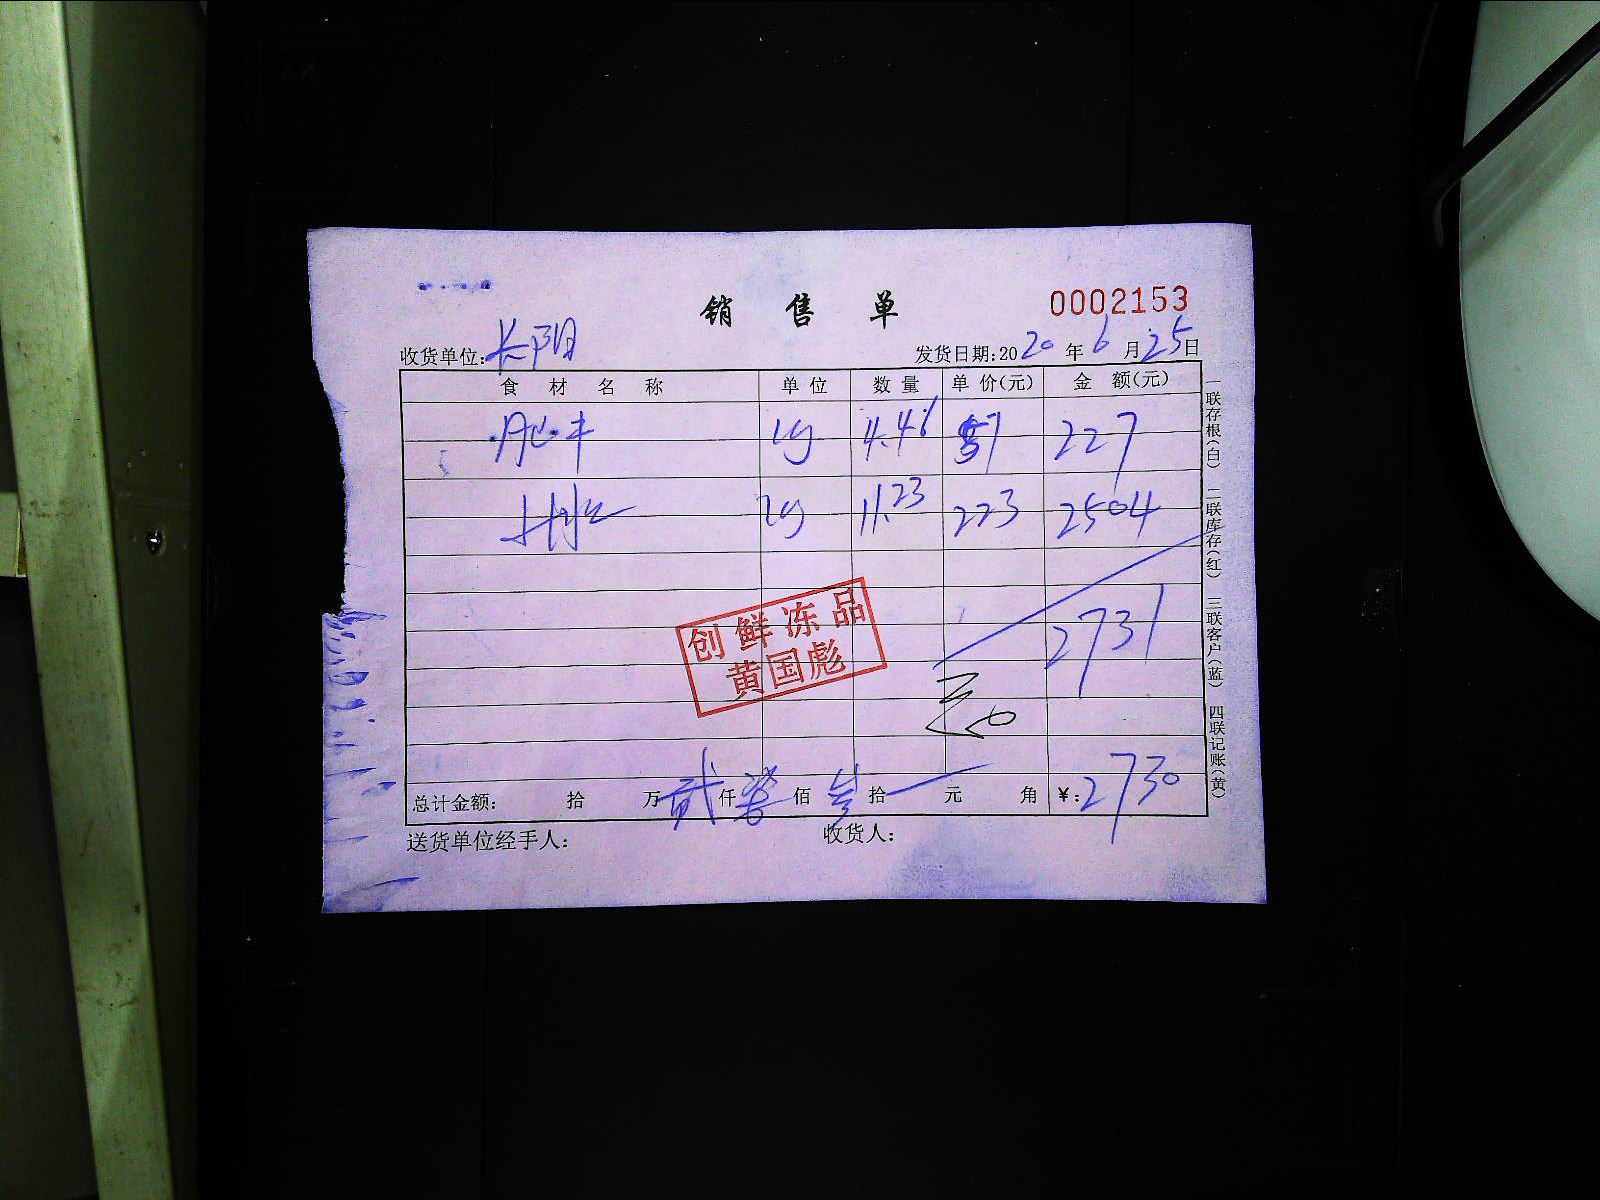 销售单
0002153
收货单位:长阳
发货日期:2020年6月25日
食材名称 单位 数量 单价(元) 金额(元)
肥牛 kg 4.46 227
kg 11.23 223 2504
2731
创鲜冻品
黄国彪
总计金额: 拾 万 贰 仟 柒 佰 叁 拾 元 角 ¥:2730
送货单位经手人: 收货人:
一联存根(白) 二联库存(红) 三联客户(蓝) 四联记账(黄)